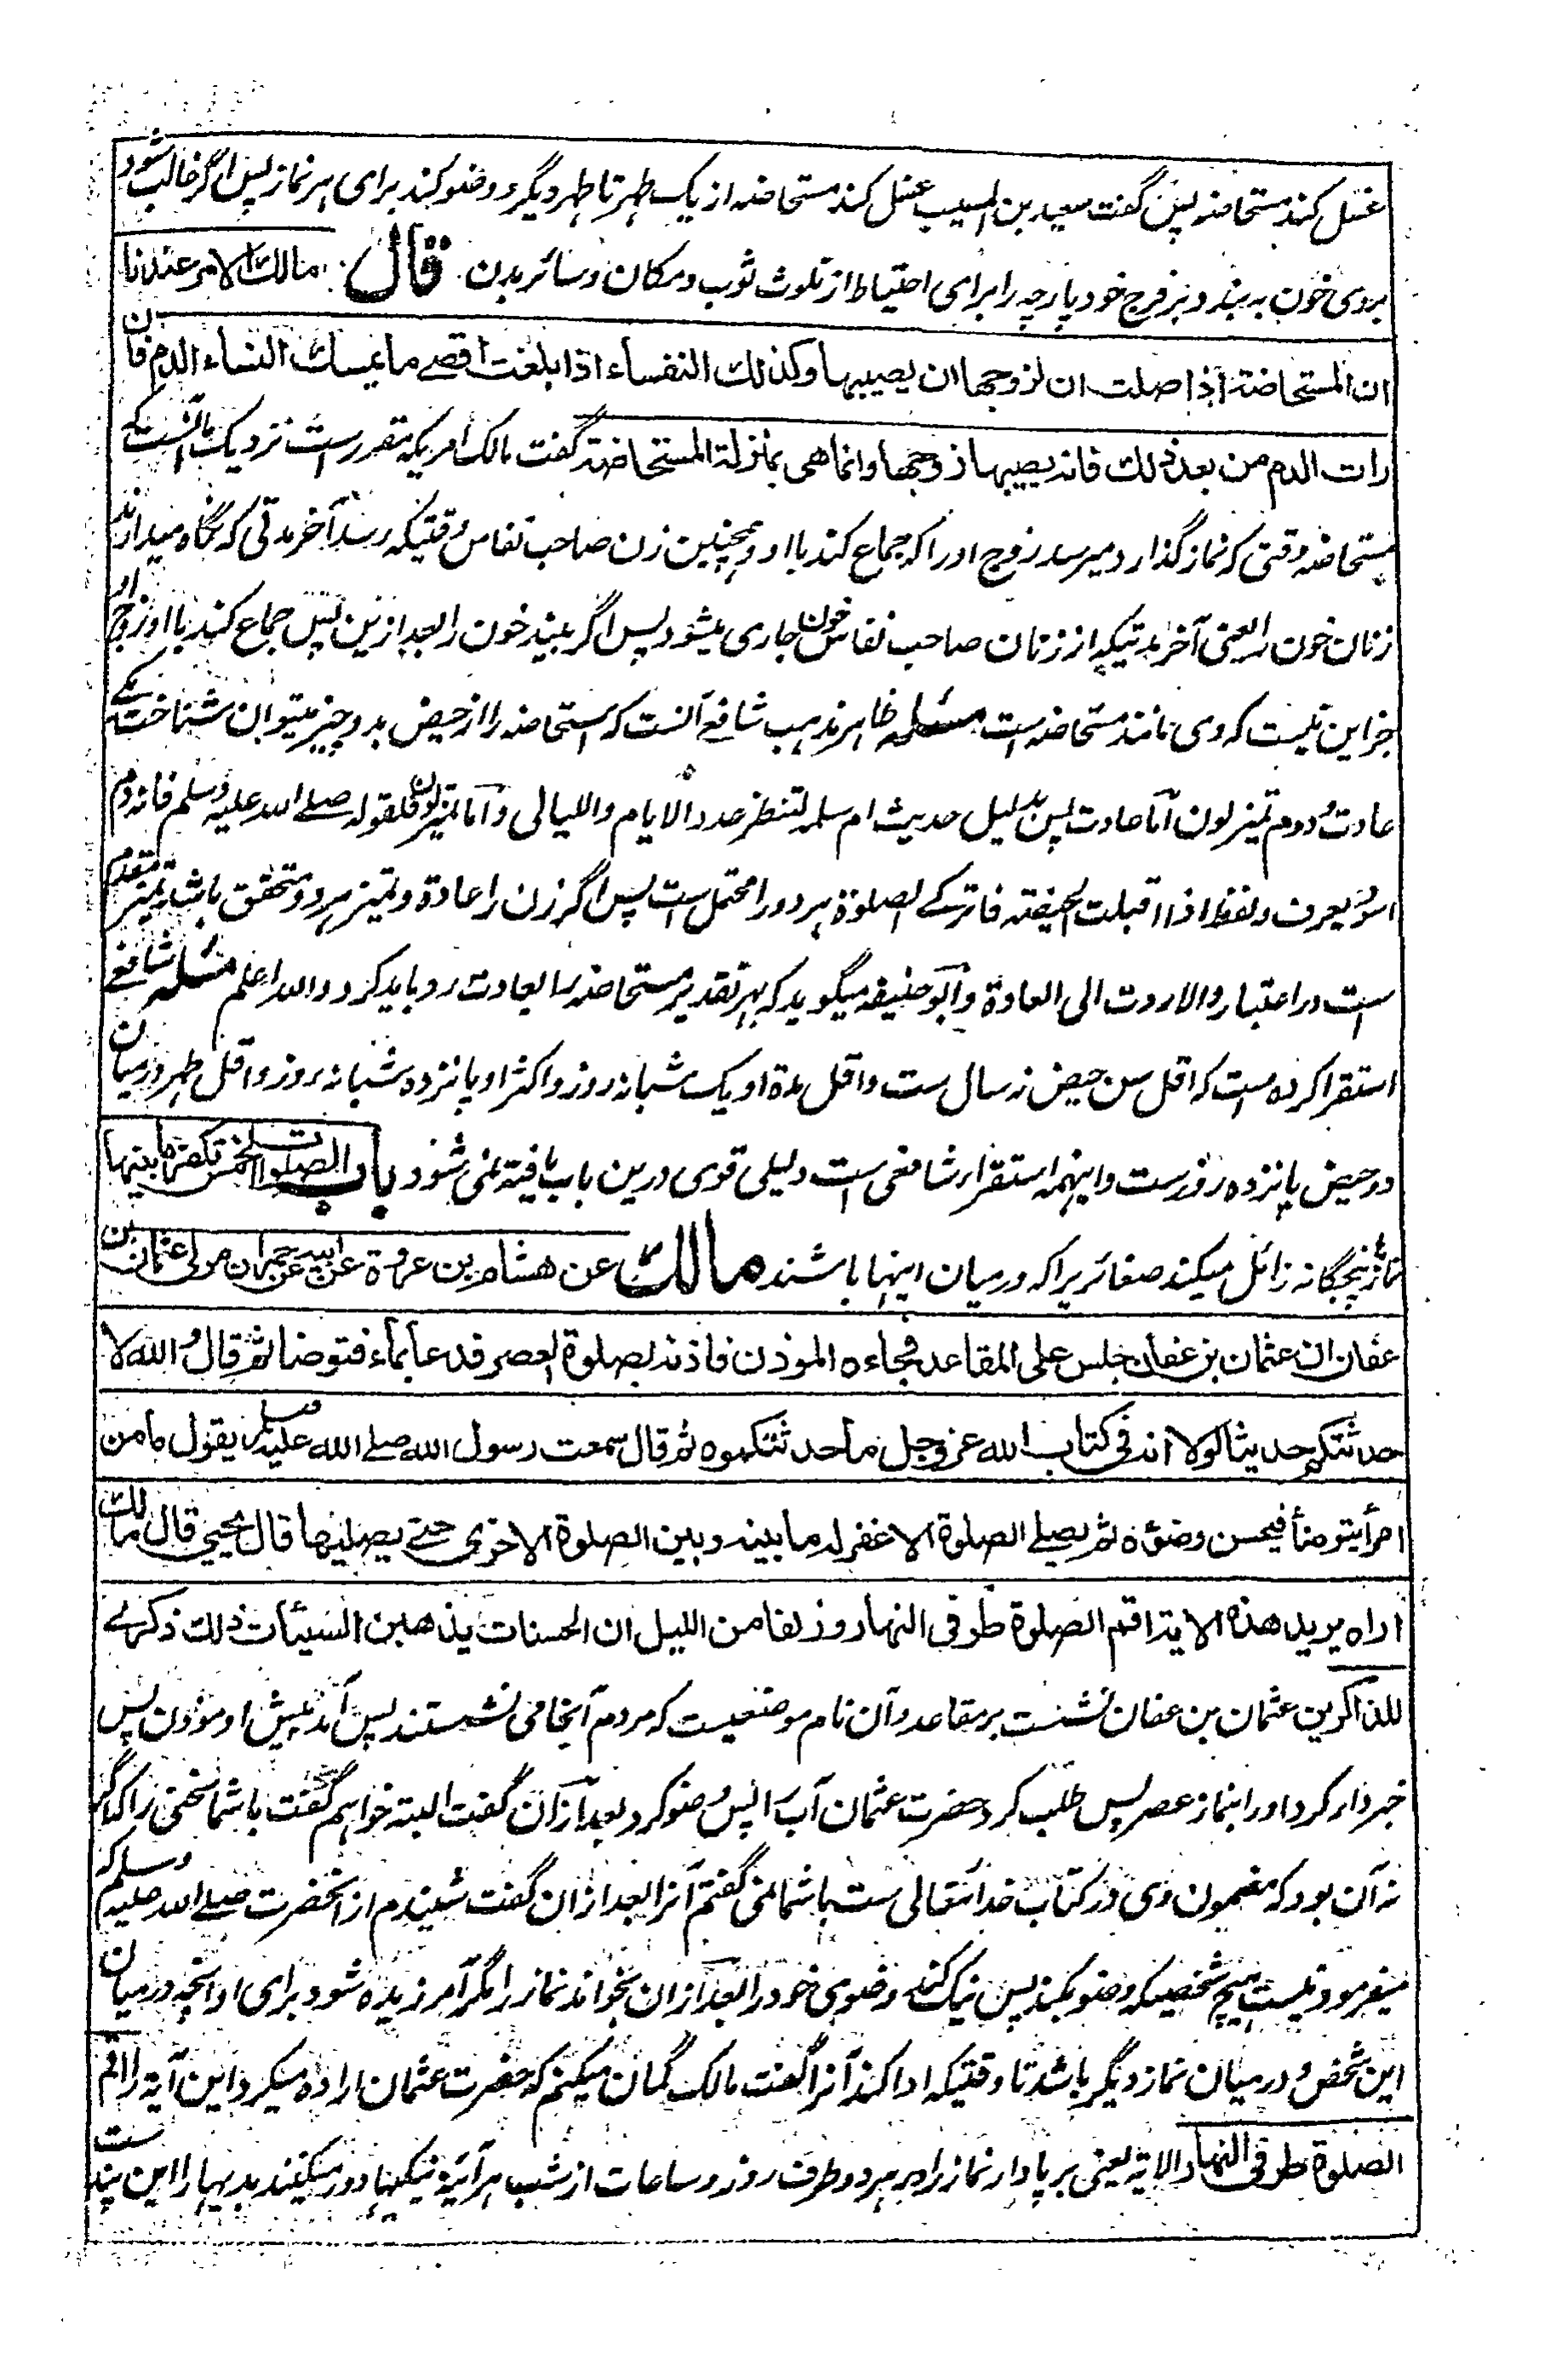 غسل کند مستحاضه پس گفت سعید بن المسیب غسل کند مستحاضه از یک طهر تا طهر دیگر و وضو کند برای هر نماز پس اگر غالب شود
بروی خون به بندد بر فرج خود پارچه را برای احتیاط از تلوث ثوب و مکان و سائر بدن قال مالك الامر عندنا
ان المستحاضة اذا صلت ان لزوجها ان یصیبها وکذلك النفساء اذا بلغت اقصے ما یمسك النساء الدم فان
رات الدم من بعد ذلك فانه یصیبها زوجها وانما هی بمنزلة المستحاضة گفت مالک امریکه مقرر است نزدیک ما آنست که
مستحاضه وقتی که نماز گذارد میرسد زوج او را که جماع کند با او و همچنین زن صاحب نفاس وقتیکه رسد آخر مدتی که نگاه میدارند
زنان خون را یعنی آخر مدتیکه از زنان صاحب نفاس خون جاری میشود پس اگر بیند خون را بعد ازین پس جماع کند با او زوج او
جز این نیست که وی مانند مستحاضه است مسئله ظاهر مذهب شافعے آنست که استحاضه را از حیض بدو چیز میتوان شناخت یکے
عادت و دوم تمیز لون اما عادت پس بدلیل حدیث ام سلمه لتنظر عدد الایام واللیالی و اما تمیز لون فلقوله صلے الله علیه وسلم فانه دم
اسود یعرف و لفظ اذا اقبلت الحیضته فاترکے الصلوة هر دو را محتمل است پس اگر زن را عادة و تمیز هر دو متحقق باشد تمیز مقدم
است در اعتبار و الا ردت الی العادة و ابو حنیفه میگوید که بهر تقدیر مستحاضه را بعادت رد باید کرد والله اعلم مسئله شافعے
استقرا کرده است که اقل سن حیض نه سال ست و اقل مدة او یک شبانه روز و اکثر او پانزده شبانه روز و اقل طهر درمیان
دو حیض پانزده روز ست و اینهمه استقراء شافعی است دلیلی قوی درین باب یافته نمی شود باب الصلوات الخمس تکفر ما بینها
نماز پنجگانه زائل میکند صغائر یرا که درمیان اینها باشند مالك عن هشام بن عروة عن ابیه عن حمران مولی عثمان بن
عفان ان عثمان بن عفان جلس علی المقاعد فجاءه الموذن فاذنه بصلوة العصر فدعا بماء فتوضا ثم قال والله لا
حدثنکم حدیثا لولا انه فی کتاب الله عز وجل ما حدثتکموه ثم قال سمعت رسول الله صلے الله علیه وسلم یقول ما من
امرأ یتوضأ فیحسن وضوءه ثم یصلے الصلوة الا غفر له ما بینه وبین الصلوة الاخری حتے یصلیها قال یحیی قال مالك
اراه یرید هذه الایة اقم الصلوة طرفی النهار وزلفا من اللیل ان الحسنات یذهبن السیئات ذلك ذکرے
للذاکرین عثمان بن عفان نشست بر مقاعد و آن نام موضعیست که مردم آنجا می نشستند پس آمد پیش او موذن پس
خبردار کرد او را بنماز عصر پس طلب کرد حضرت عثمان آب را پس وضو کرد بعد ازان گفت البته خواهم گفت با شما سخنی را که اگر
نه آن بود که مضمون وی در کتاب خدائتعالی ست با شما نمی گفتم آنرا بعد ازان گفت شنیدم از آنحضرت صلے الله علیه وسلم که
میفرمود نیست هیچ شخصیکه وضو بکند پس نیک کند وضوی خود را بعد ازان بخواند نماز را مگر آمرزیده شود برای او آنچه درمیان
این شخص و درمیان نماز دیگر باشد تا وقتیکه ادا کند آنرا گفت مالک گمان میکنم که حضرت عثمان اراده میکرد این آیة را اقم
الصلوة طرفی النهار الایة یعنی برپا دار نماز را در هر دو طرف روز و ساعات از شب هر آئینه نیکیها دور میکنند بدیها را این پند ست